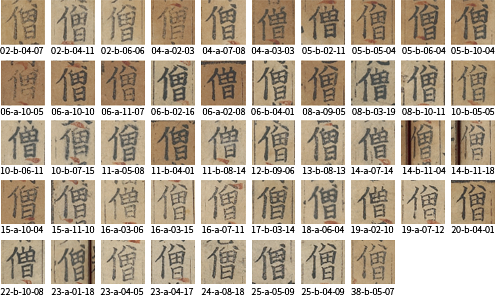 僧 僧 僧 僧 僧 僧 僧 僧 僧 僧
02-b-04-07 02-b-04-11 02-b-06-06 04-a-02-03 04-a-07-08 04-a-03-03 05-b-02-11 05-b-05-04 05-b-06-04 05-b-10-04
僧 僧 僧 僧 僧 僧 僧 僧 僧 僧
06-a-10-05 06-a-10-10 06-a-11-07 06-b-02-16 06-a-02-08 06-b-04-01 08-a-09-05 08-b-03-19 08-b-10-11 10-b-05-05
僧 僧 僧 僧 僧 僧 僧 僧 僧 僧
10-b-06-11 10-b-07-15 11-a-05-08 11-b-04-01 11-b-08-14 12-b-09-06 13-b-08-13 14-a-07-14 14-b-11-04 14-b-11-18
僧 僧 僧 僧 僧 僧 僧 僧 僧 僧
15-a-10-04 15-a-11-10 16-a-03-06 16-a-03-15 16-a-07-11 17-b-03-14 18-a-06-04 19-a-02-10 19-a-07-12 20-b-04-01
僧 僧 僧 僧 僧 僧 僧 僧
22-b-10-08 23-a-01-18 23-a-04-05 23-a-04-17 24-a-08-18 25-a-05-09 25-b-04-09 38-b-05-07